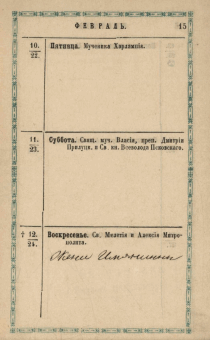 ФЕВРАЛЬ. 15
10. 22. Пятница. Мученика Харлампія.
11. 23. Суббота. Свящ. муч. Власія, преп. Дмитрія
Прилуцк. и Св. кн. Всеволода Псковскаго.
† 12. 24. Воскресенье. Св. Мелетія и Алексія Митро-
полита.